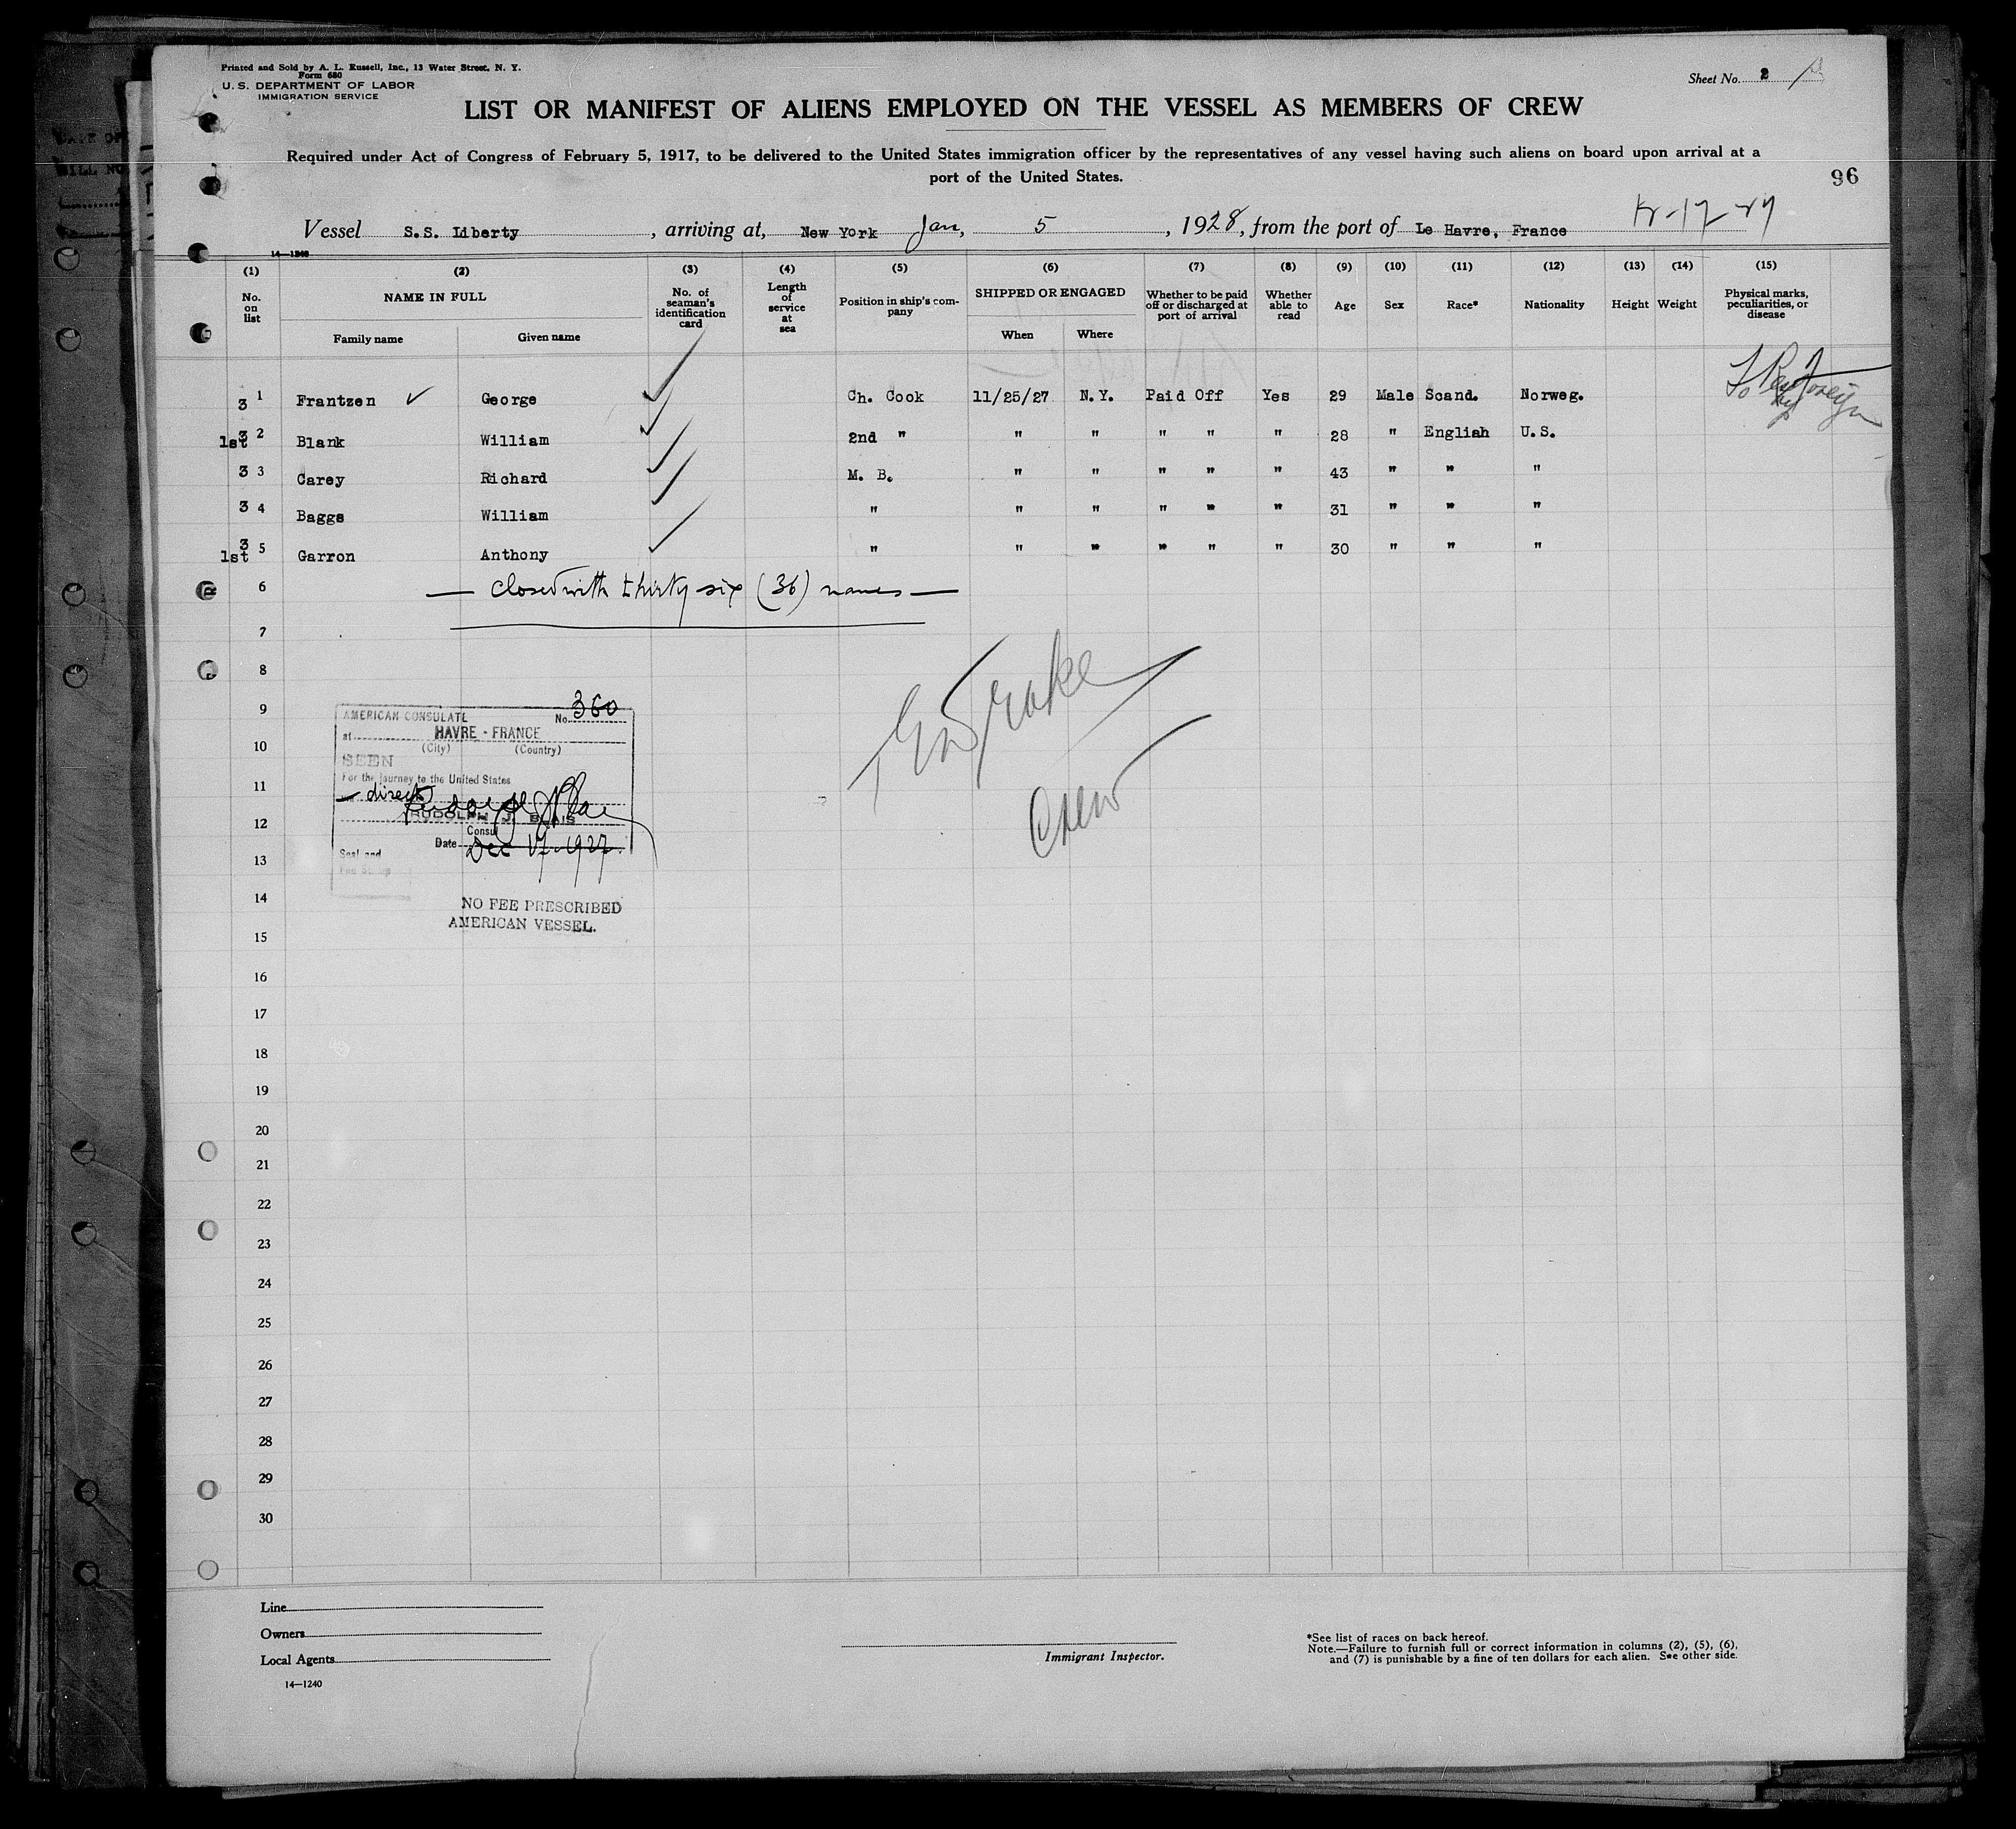 Printed and Sold by A. L. Russell, Inc., 13 Water Street, N. Y.
Form 680
U. S. DEPARTMENT OF LABOR
IMMIGRATION SERVICE
Sheet No. 2
LIST OR MANIFEST OF ALIENS EMPLOYED ON THE VESSEL AS MEMBERS OF CREW
Required under Act of Congress of February 5, 1917, to be delivered to the United States immigration officer by the representatives of any vessel having such aliens on board upon arrival at a
port of the United States.
96
Vessel S.S. Liberty, arriving at, New York Jan, 5, 1928, from the port of Le Havre, France
14—1240
(1) (2) (3) (4) (5) (6) (7) (8) (9) (10) (11) (12) (13) (14) (15)
No. on list
NAME IN FULL
Family name Given name
No. of seaman's identification card
Length of service at sea
Position in ship's company
SHIPPED OR ENGAGED
When Where
Whether to be paid off or discharged at port of arrival
Whether able to read
Age Sex Race* Nationality Height Weight
Physical marks, peculiarities, or disease
3 1 Frantzen George Ch. Cook 11/25/27 N.Y. Paid Off Yes 29 Male Scand. Norweg.
1st 3 2 Blank William 2nd " " " " " " 28 " English U.S.
3 3 Carey Richard M. B. " " " " " 43 " " "
3 4 Baggs William " " " " " " 31 " " "
1st 3 5 Garron Anthony " " " " " " 30 " " "
6 — Closed with thirty six (36) names —
7
8
9
10
11
12
13
14
15
16
17
18
19
20
21
22
23
24
25
26
27
28
29
30
AMERICAN CONSULATE No. 360
at HAVRE - FRANCE
(City) (Country)
SEEN
For the journey to the United States
— direct
RUDOLPH J. BLAIS
Consul
Date Dec 17-1927
Seal and
NO FEE PRESCRIBED
AMERICAN VESSEL.
Crew
Line
Owners
Local Agents
14—1240
Immigrant Inspector.
*See list of races on back hereof.
Note.—Failure to furnish full or correct information in columns (2), (5), (6),
and (7) is punishable by a fine of ten dollars for each alien. See other side.